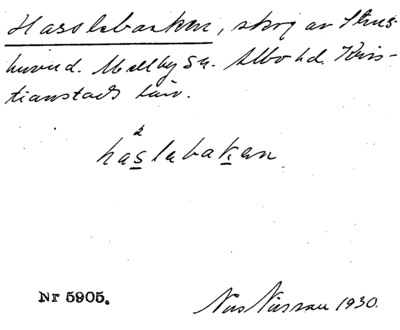 Hasslebacken, skog av Stens-
huvud. Mellby Sn. Albo hd. Kris-
tianstads län.
hàslabakan
Nr 5905.
Nils Nilsson 1930.